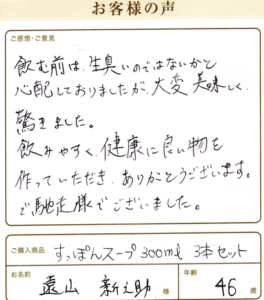 お客様の声
ご感想・ご意見
飲む前は、生臭いのではないかと
心配しておりましたが、大変美味しく、
驚きました。
飲みやすく、健康に良い物を
作っていただき、ありがとうございます。
ご馳走様でございました。
ご購入商品 すっぽんスープ300ml 3本セット
お名前 遠山 新之助 様 年齢 46 歳